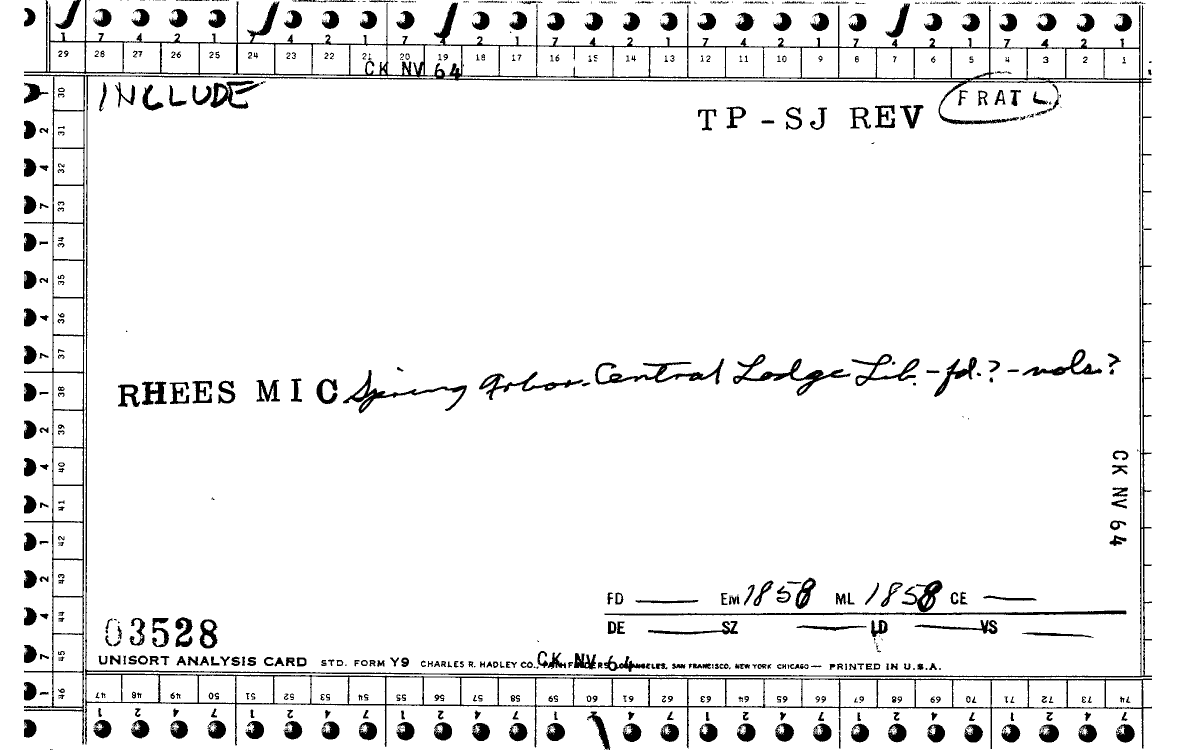 1 7 4 2 1 7 4 2 1 7 4 2 1 7 4 2 1 7 4 2 1 7 4 2 1 7 4 2 1
29 28 27 26 25 24 23 22 21 20 19 18 17 16 15 14 13 12 11 10 9 8 7 6 5 4 3 2 1
CK NV 64
INCLUDE
FRATL
TP-SJ REV
RHEES MIC Spring Arbor-Central Lodge Lib.-fd.?-vols.?
CK NV 64
FD — EM 1858 ML 1858 CE —
DE — SZ — LD — VS —
03528
UNISORT ANALYSIS CARD STD. FORM Y9 CHARLES R. HADLEY CO., PATHFINDERS, LOS ANGELES, SAN FRANCISCO, NEW YORK CHICAGO — PRINTED IN U.S.A.
CK NV 64
30 31 32 33 34 35 36 37 38 39 40 41 42 43 44 45 46
47 48 49 50 51 52 53 54 55 56 57 58 59 60 61 62 63 64 65 66 67 68 69 70 71 72 73 74
1 2 4 7 1 2 4 7 1 2 4 7 1 2 4 7 1 2 4 7 1 2 4 7 1 2 4 7